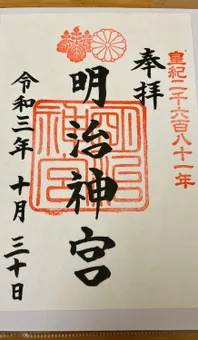 皇紀二千六百八十一年
奉拝
明治神宮
令和三年 十月 三十日
明治神宮